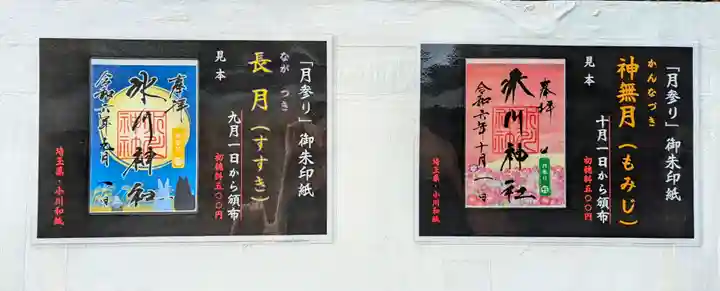 「月参り」御朱印紙
ながつき
長月(すすき)
見本
九月一日から頒布
初穂料五〇〇円
奉拝
氷川神社
令和六年九月一日
埼玉県・小川和紙
「月参り」御朱印紙
かんなづき
神無月(もみじ)
見本
十月一日から頒布
初穂料五〇〇円
奉拝
氷川神社
令和六年十月一日
埼玉県・小川和紙